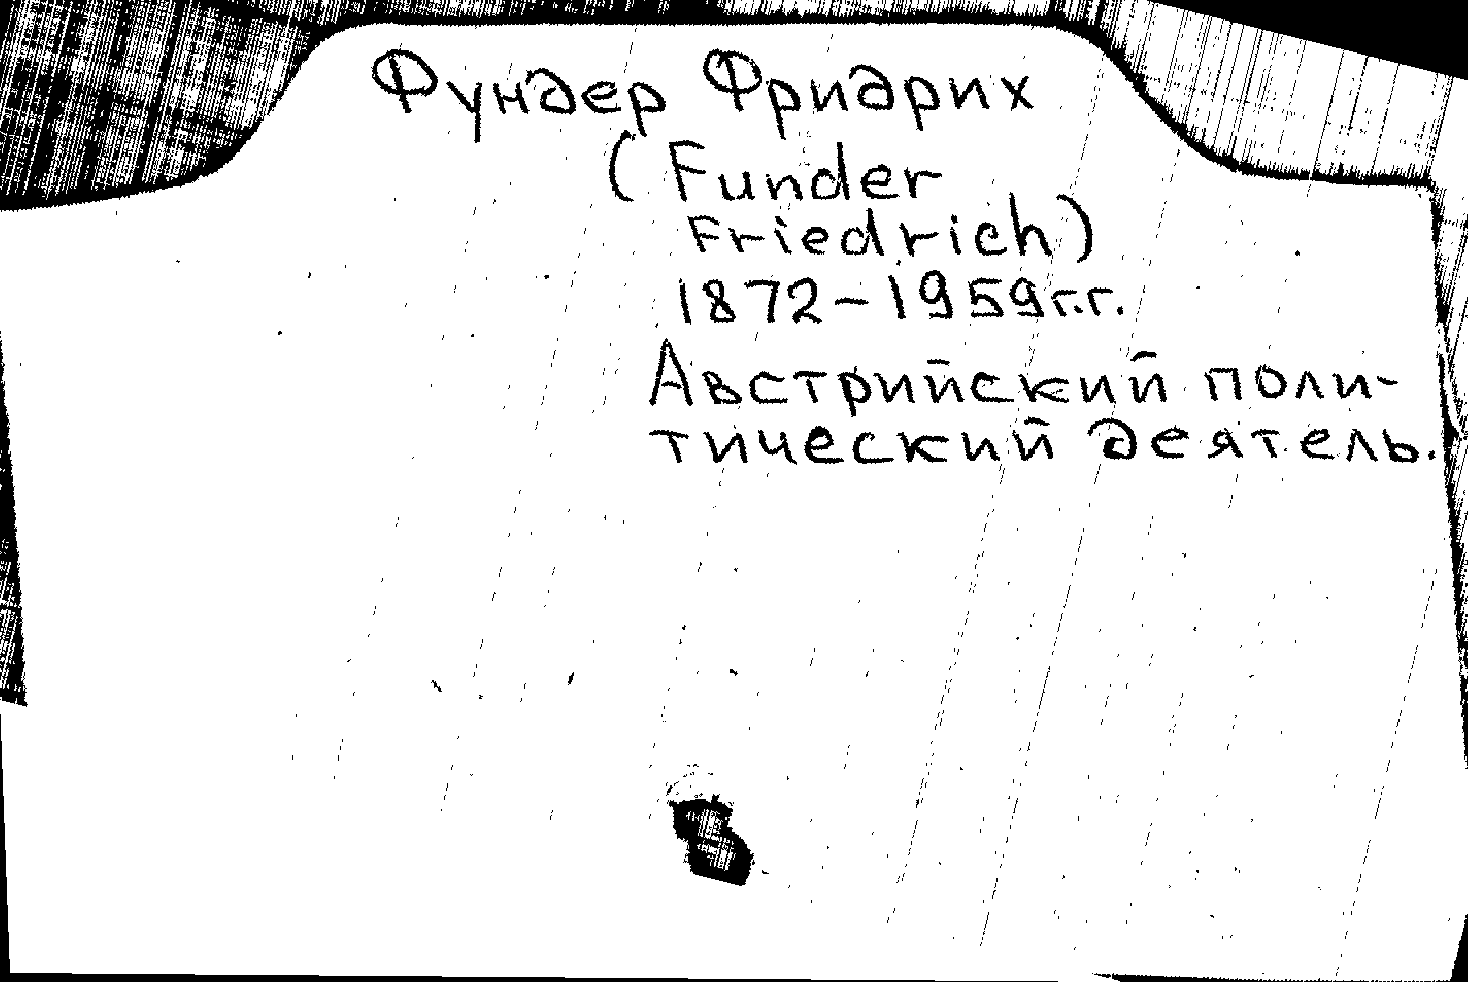 Фундер Фридрих
(Funder
Friedrich)
1872-1959г.г.
Австрийский поли-
тический деятель.